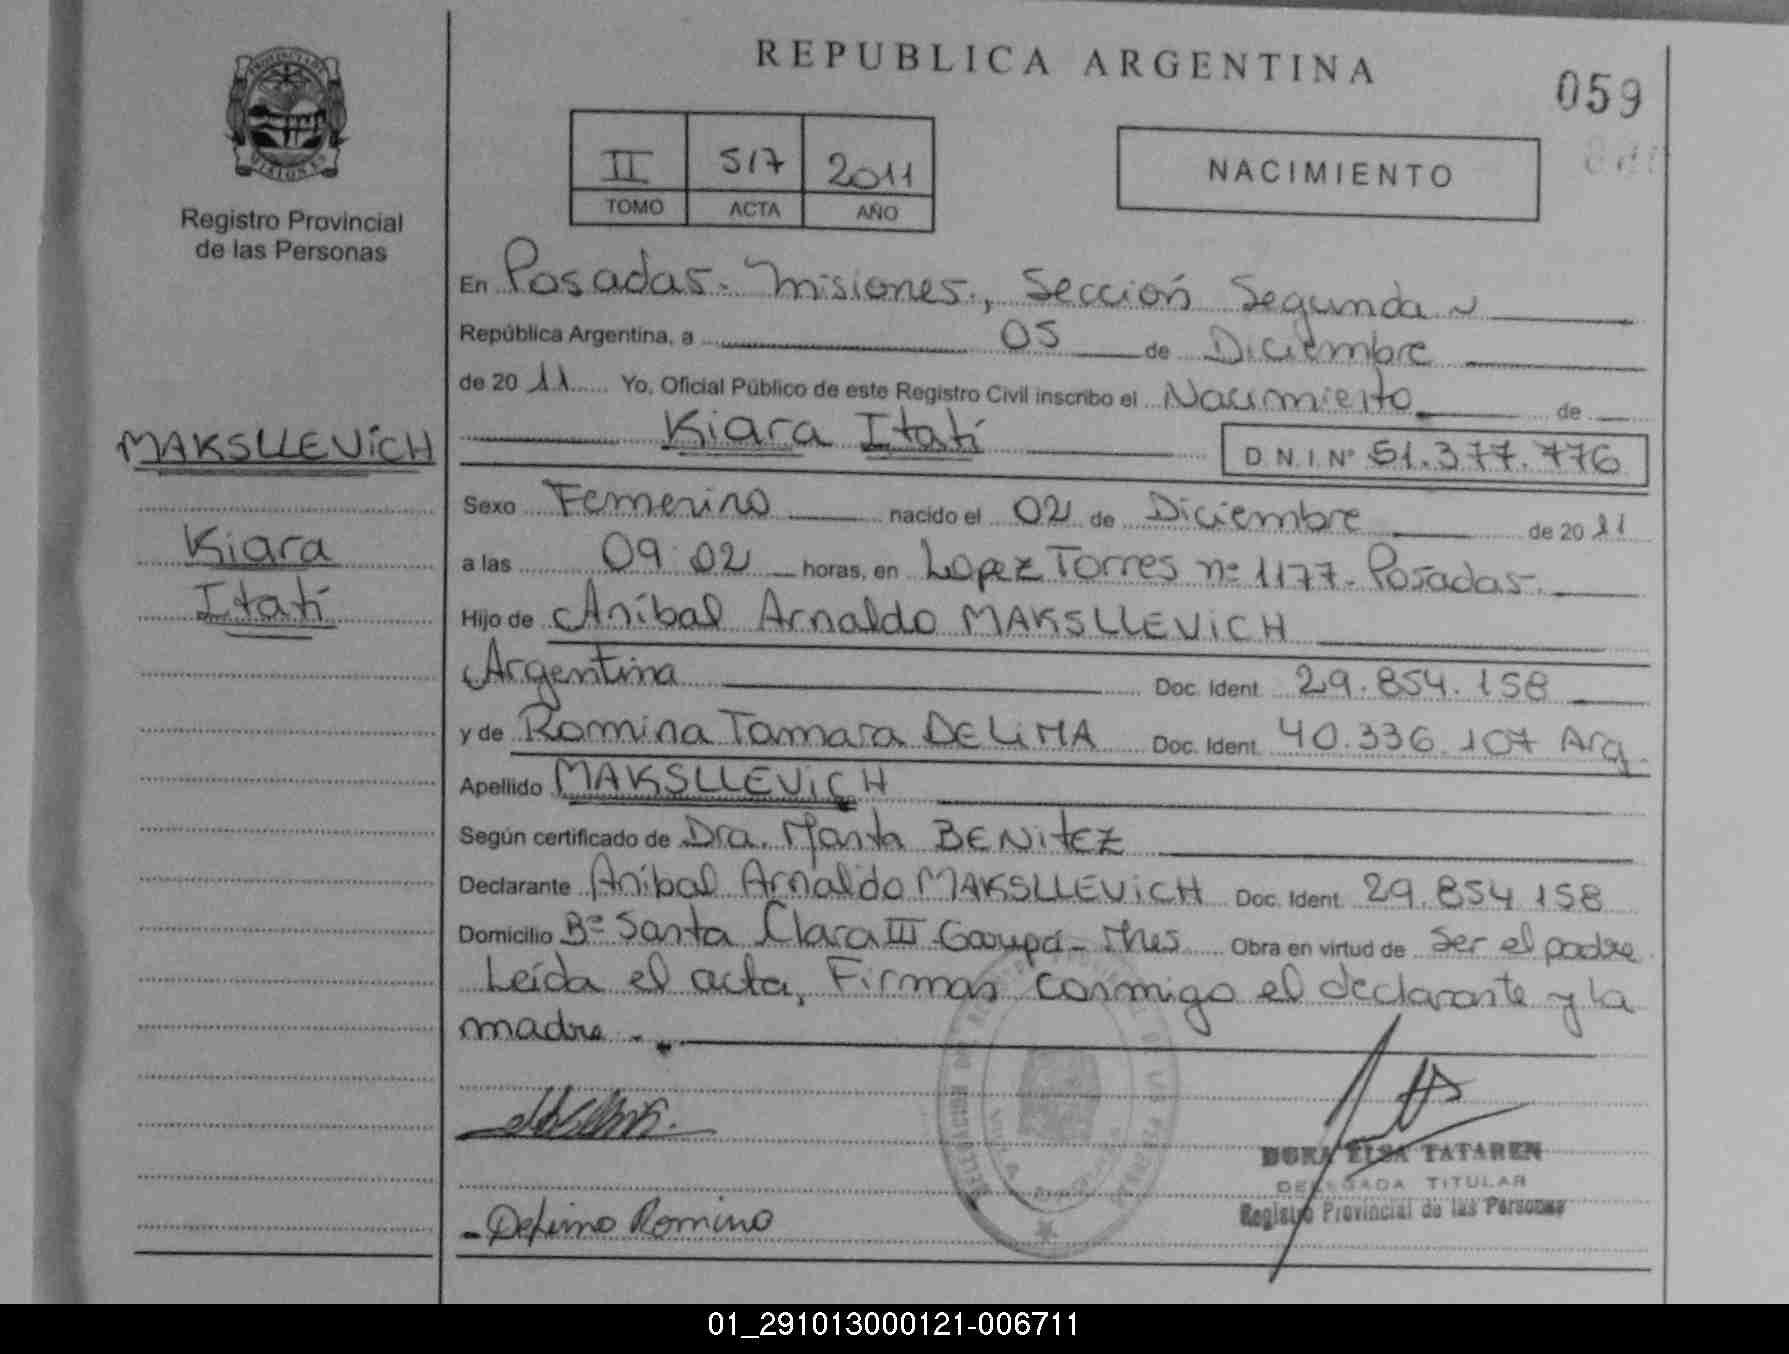 REPUBLICA ARGENTINA
059
PROVINCIA DE MISIONES
Registro Provincial
de las Personas
II 517 2011
TOMO ACTA AÑO
NACIMIENTO
En Posadas - Misiones, Sección Segunda
República Argentina, a 05 de Diciembre
de 20 11 Yo, Oficial Público de este Registro Civil inscribo el Nacimiento de
Kiara Itatí D.N.I. N° 51.377.776
MAKSLLEViCH
Kiara
Itatí
Sexo Femenino nacido el 02 de Diciembre de 20 11
a las 09:02 horas, en Lopez Torres nº 1177 - Posadas.
Hijo de Aníbal Arnaldo MAKSLLEViCH
Argentina Doc. Ident. 29.854.158
y de Romina Tamara DE LiMA Doc. Ident. 40.336.107 Arg.
Apellido MAKSLLEViCH
Según certificado de Dra. Marta BENitEZ
Declarante Aníbal Arnaldo MAKSLLEViCH Doc. Ident. 29.854.158
Domicilio Bº Santa Clara III Garupá - Mnes Obra en virtud de Ser el padre
Leída el acta, Firman conmigo el declarante y la
madre.-
DORA ELSA TATAREN
DELEGADA TITULAR
Registro Provincial de las Personas
Romina
01_291013000121-006711